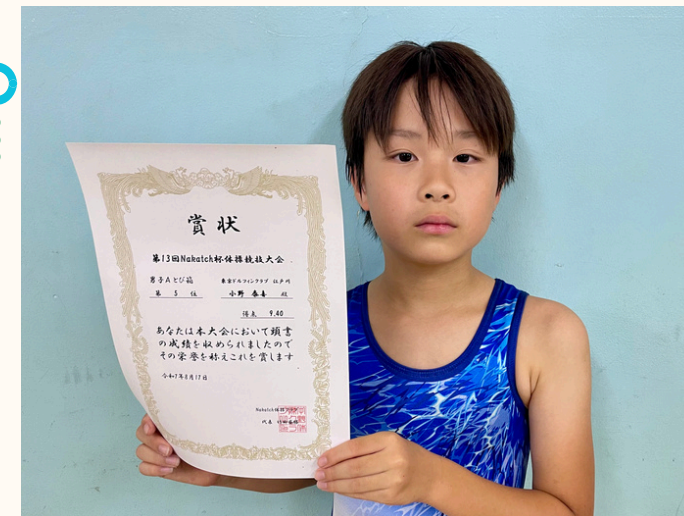 賞状
第13回Nakatch杯体操競技大会
男子Aとび箱 東京ドルフィンクラブ 江戸川
第 5 位 小野 泰喜 殿
得点 9.40
あなたは本大会において頭書
の成績を収められましたので
その栄誉を称えこれを賞します
令和7年8月17日
Nakatch体操クラブ
代表